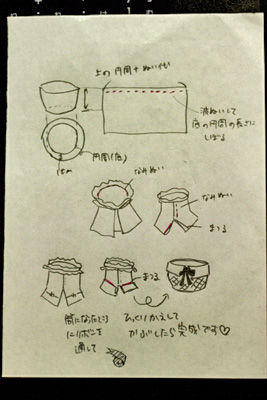 上の円周+ぬい代
波ぬいして
底の円周の長さに
しぼる
円周(底)
なみぬい
なみぬい
まつる
まつる
筒になったところ
にリボンを
通して
ひっくりかえして
かぶしたら完成です♡